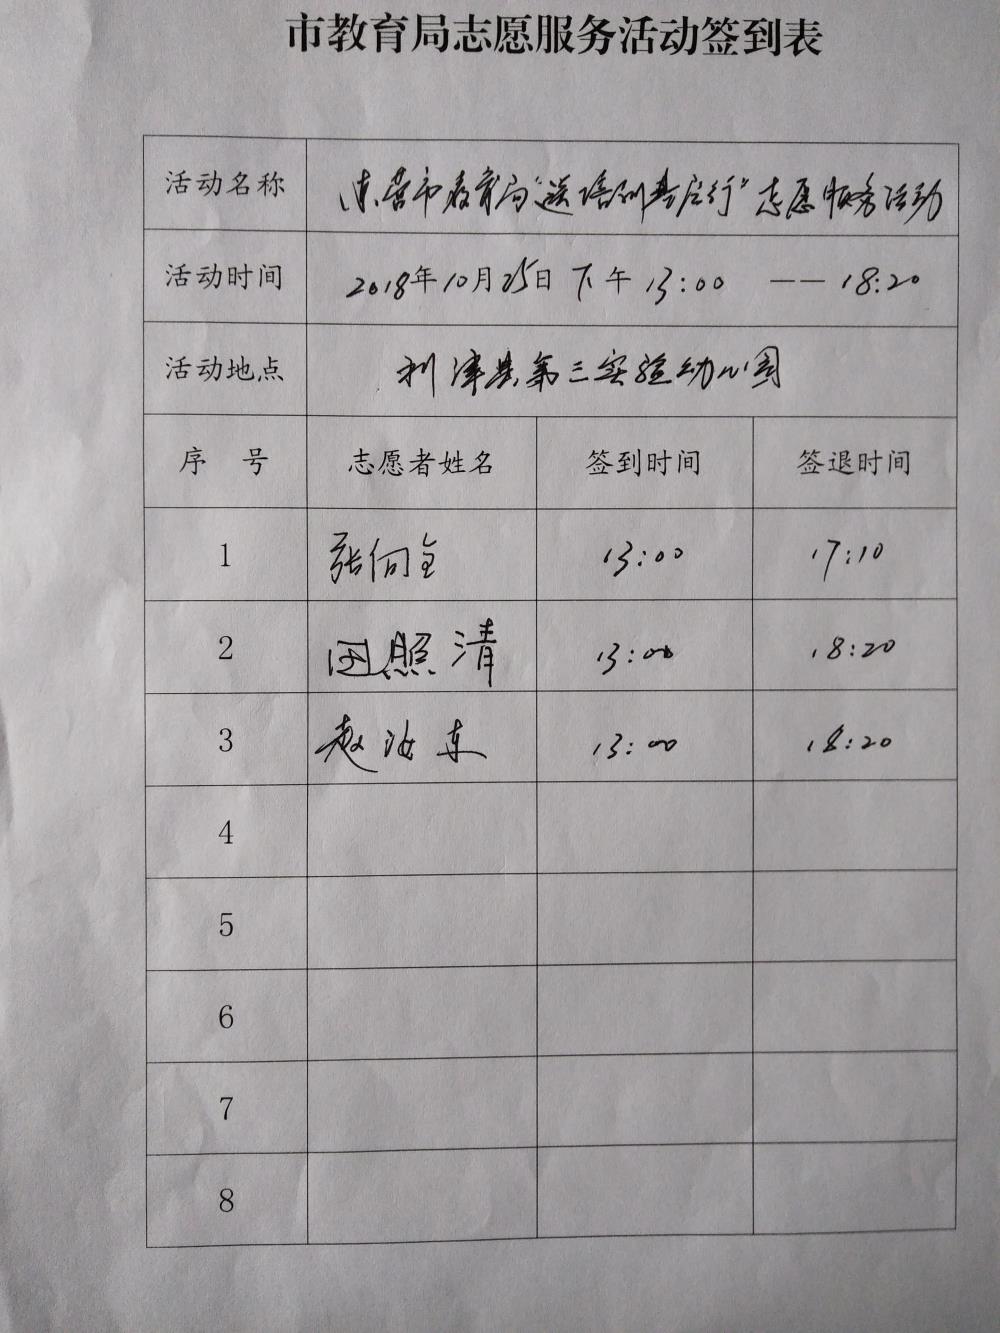 市教育局志愿服务活动签到表
活动名称 东营市教育局“送培训基层行”志愿服务活动
活动时间 2018年10月25日下午13:00 —— 18:20
活动地点 利津县第三实验幼儿园
序 号 志愿者姓名 签到时间 签退时间
1 张向全 13:00 17:10
2 田照清 13:00 18:20
3 赵汝东 13:00 18:20
4
5
6
7
8